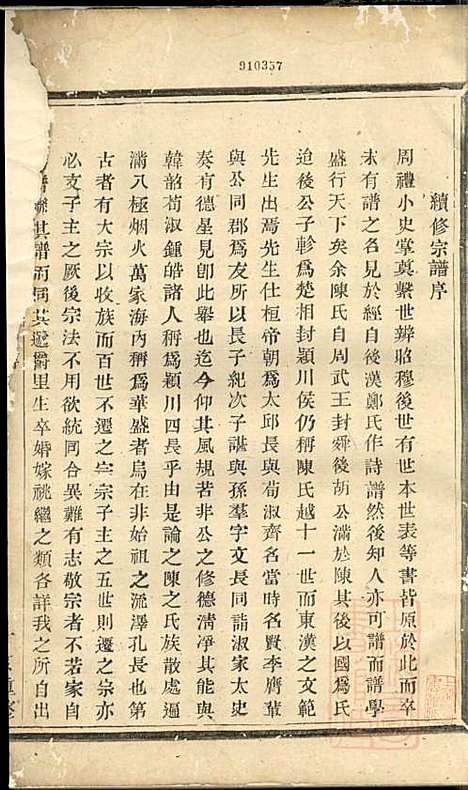 910357
續修宗譜序
周禮小史掌奠繫世辨昭穆後世有世本世表等書皆原於此而卒
未有譜之名見於經自後漢鄭氏作詩譜然後知人亦可譜而譜學
盛行天下矣余陳氏自周武王封舜後胡公滿於陳其後以國爲氏
迨後公子軫爲楚相封潁川侯仍稱陳氏越十一世而東漢之文範
先生出焉先生仕桓帝朝爲太邱長與荀淑齊名當時名賢李膺輩
與公同郡爲友所以長子紀次子諶與孫羣字文長同詣淑家太史
奏有德星見卽此舉也迄今仰其風規若非公之修德清淨其能與
韓韶荀淑鍾皓諸人稱爲潁川四長乎由是論之陳之氏族散處遍
滿八極烟火萬家海內稱爲華盛者烏在非始祖之流澤孔長也第
古者有大宗以收族而百世不遷之宗宗子主之五世則遷之宗亦
必支子主之厥後宗法不用欲統同合異難有志敬宗者不若家自
譜聯其譜而同其遷爵里生卒婚嫁祧繼之類各詳我之所自出